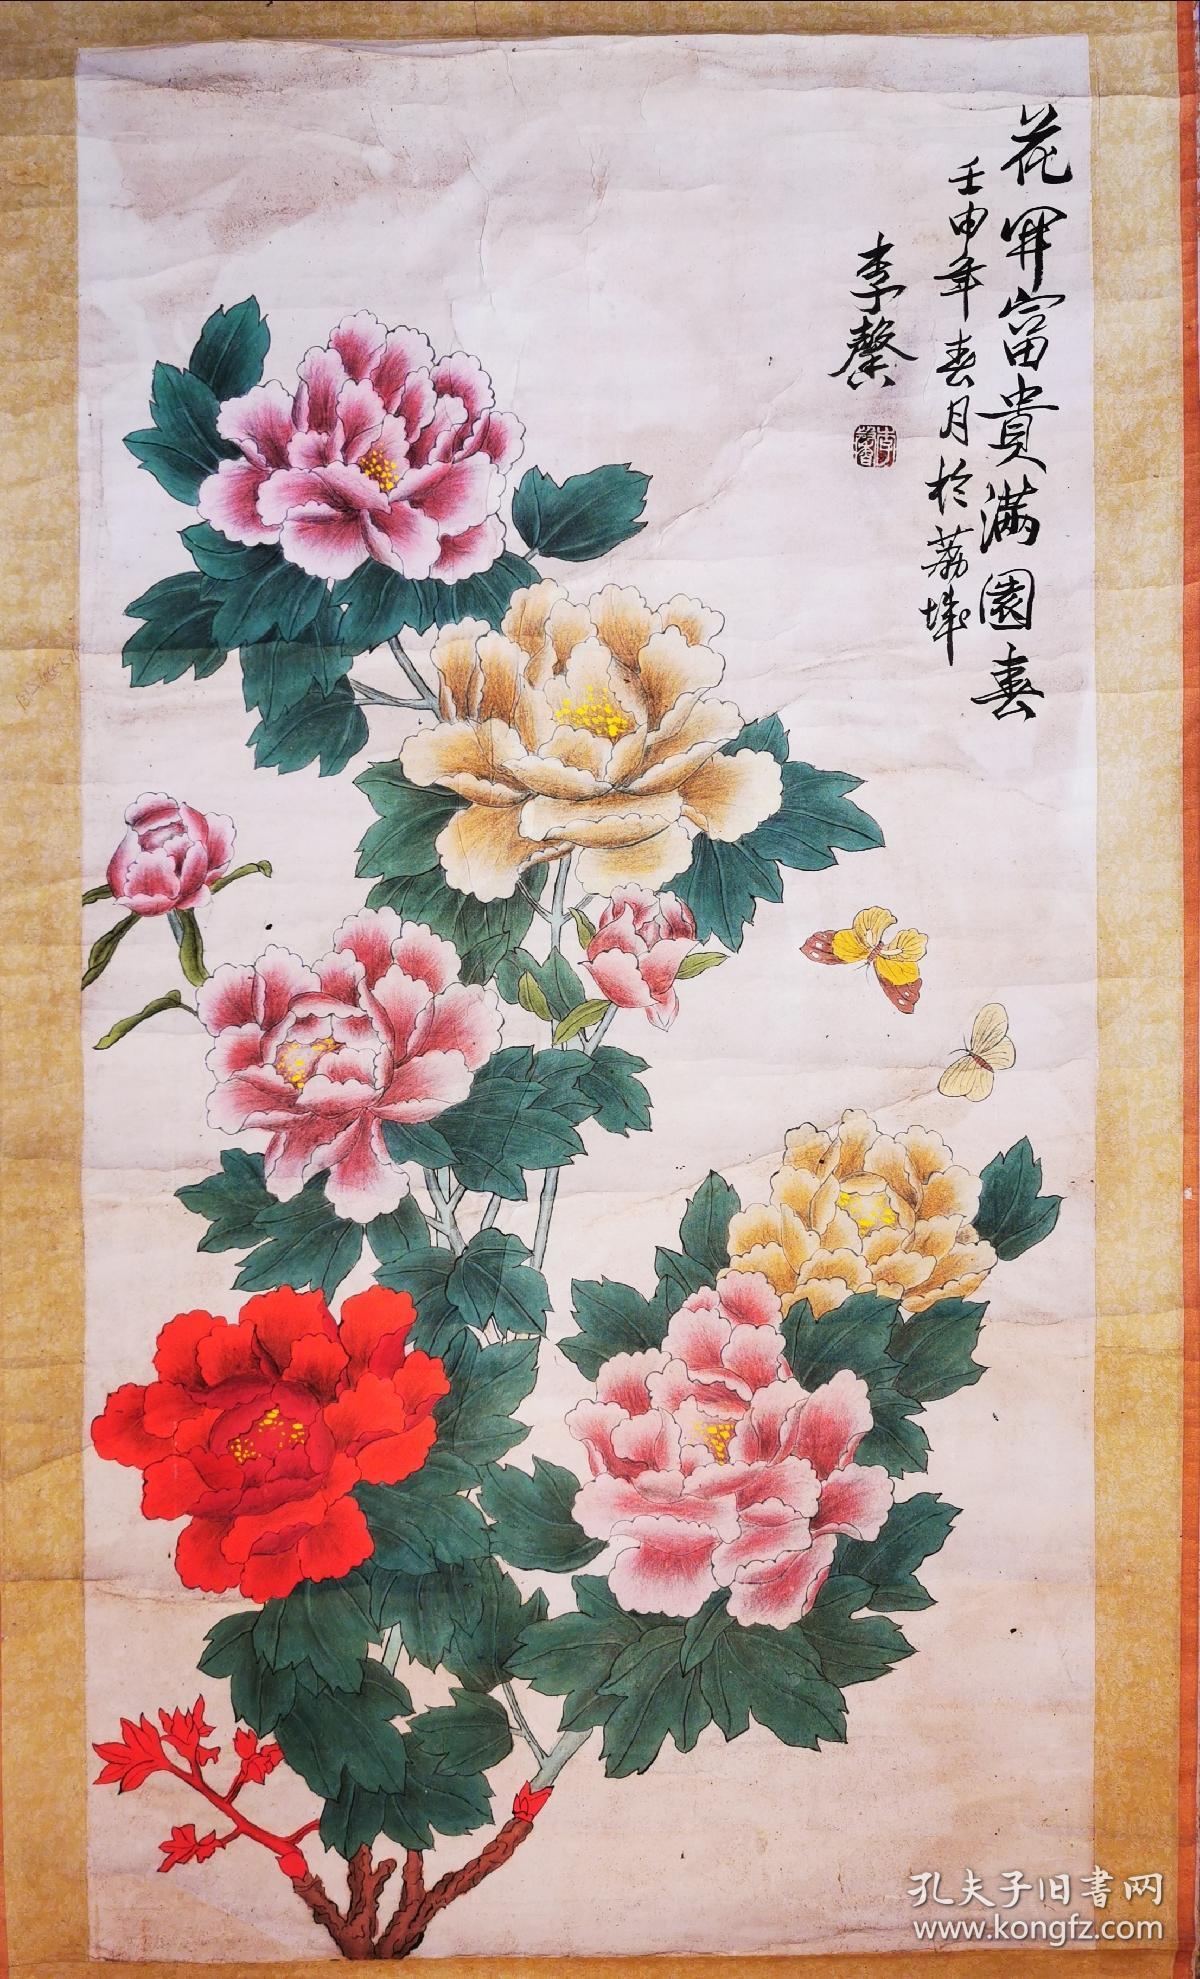 花開富貴滿園春
壬申年春月於荔城
李馨
李馨
孔夫子旧书网
www.kongfz.com